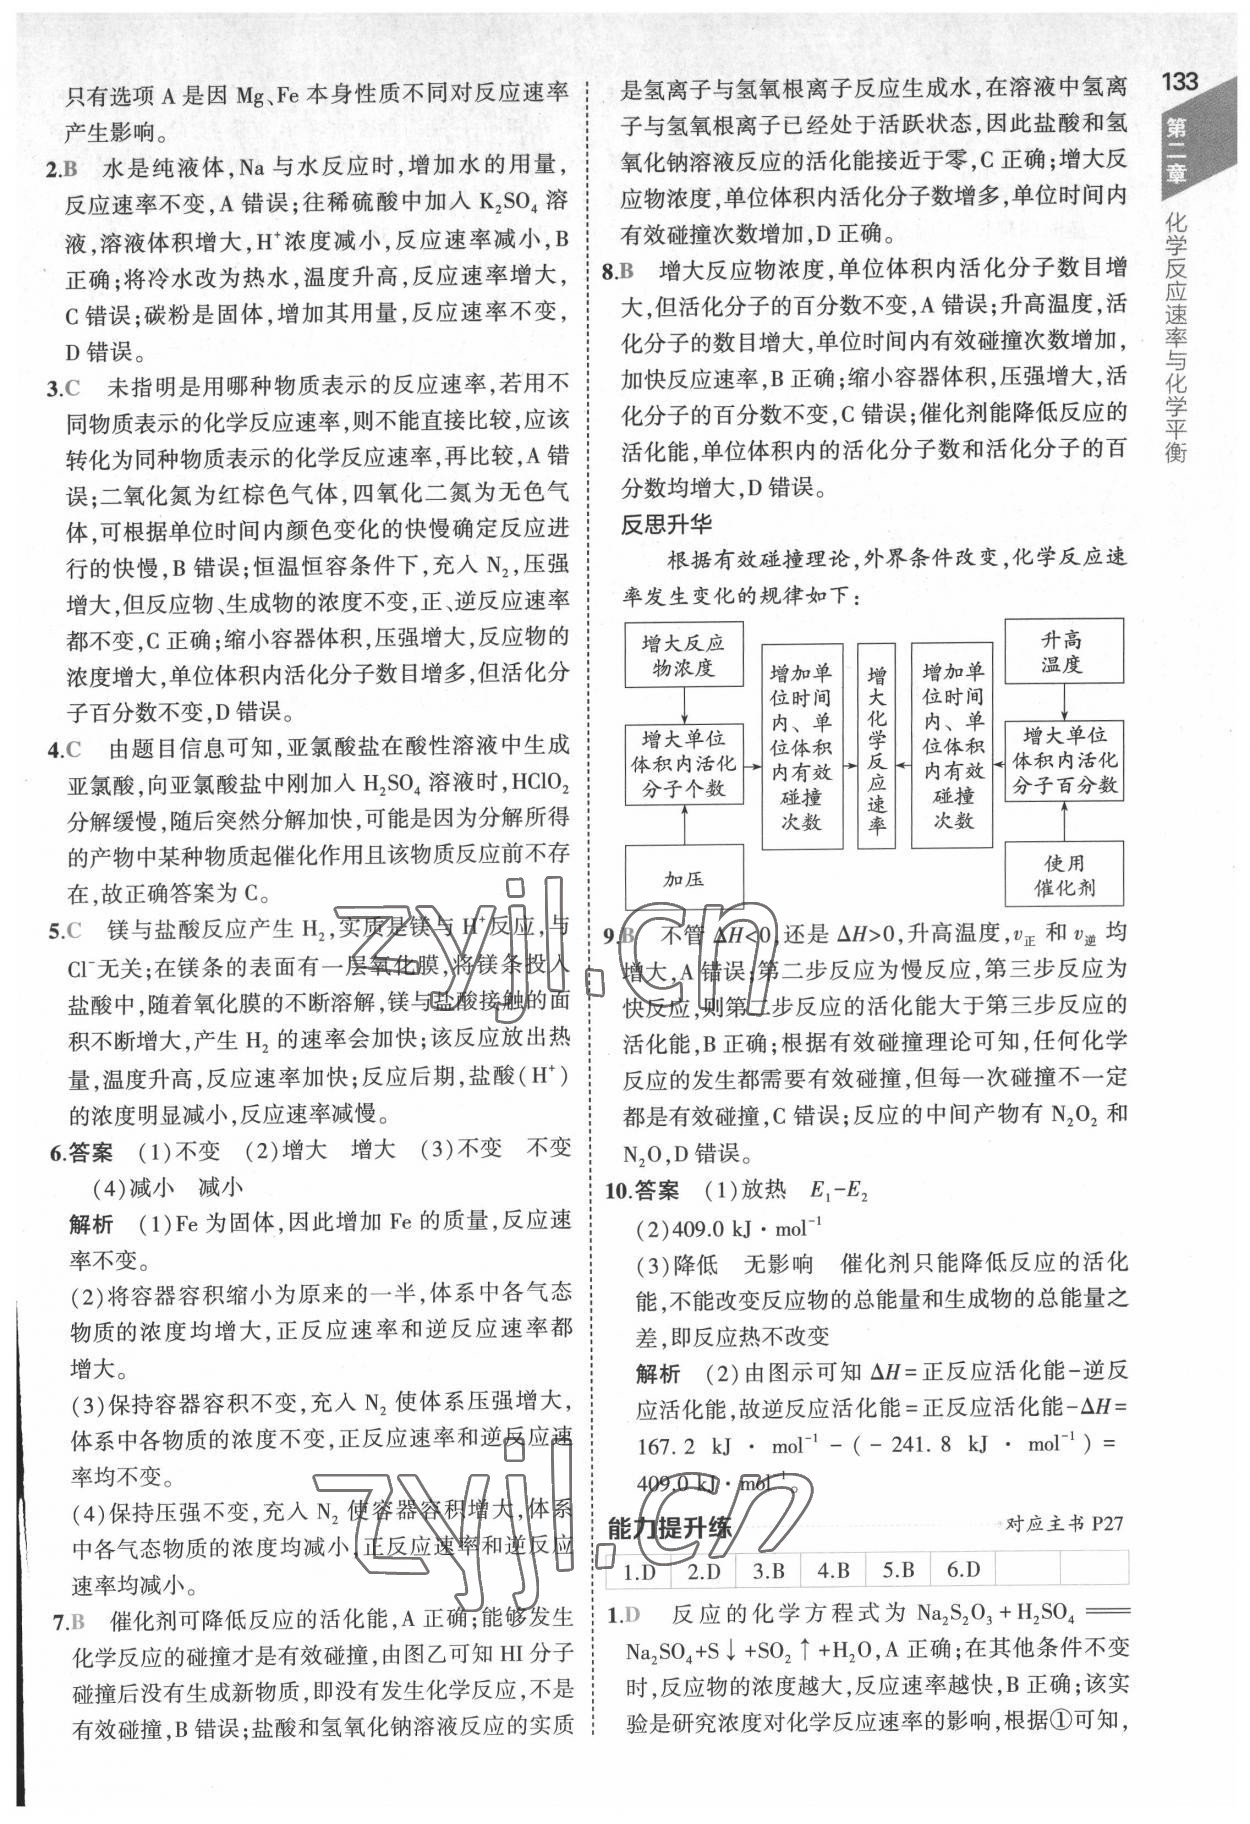 只有选项 A 是因 Mg、Fe 本身性质不同对反应速率
产生影响。
2.B 水是纯液体,Na 与水反应时,增加水的用量,
反应速率不变,A 错误;往稀硫酸中加入 K₂SO₄ 溶
液,溶液体积增大,H⁺浓度减小,反应速率减小,B
正确;将冷水改为热水,温度升高,反应速率增大,
C 错误;碳粉是固体,增加其用量,反应速率不变,
D 错误。
3.C 未指明是用哪种物质表示的反应速率,若用不
同物质表示的化学反应速率,则不能直接比较,应该
转化为同种物质表示的化学反应速率,再比较,A 错
误;二氧化氮为红棕色气体,四氧化二氮为无色气
体,可根据单位时间内颜色变化的快慢确定反应进
行的快慢,B 错误;恒温恒容条件下,充入 N₂,压强
增大,但反应物、生成物的浓度不变,正、逆反应速率
都不变,C 正确;缩小容器体积,压强增大,反应物的
浓度增大,单位体积内活化分子数目增多,但活化分
子百分数不变,D 错误。
4.C 由题目信息可知,亚氯酸盐在酸性溶液中生成
亚氯酸,向亚氯酸盐中刚加入 H₂SO₄ 溶液时,HClO₂
分解缓慢,随后突然分解加快,可能是因为分解所得
的产物中某种物质起催化作用且该物质反应前不存
在,故正确答案为 C。
5.C 镁与盐酸反应产生 H₂,实质是镁与 H⁺反应,与
Cl⁻无关;在镁条的表面有一层氧化膜,将镁条投入
盐酸中,随着氧化膜的不断溶解,镁与盐酸接触的面
积不断增大,产生 H₂ 的速率会加快;该反应放出热
量,温度升高,反应速率加快;反应后期,盐酸(H⁺)
的浓度明显减小,反应速率减慢。
6.答案 (1)不变 (2)增大 增大 (3)不变 不变
(4)减小 减小
解析 (1)Fe 为固体,因此增加 Fe 的质量,反应速
率不变。
(2)将容器容积缩小为原来的一半,体系中各气态
物质的浓度均增大,正反应速率和逆反应速率都
增大。
(3)保持容器容积不变,充入 N₂ 使体系压强增大,
体系中各物质的浓度不变,正反应速率和逆反应速
率均不变。
(4)保持压强不变,充入 N₂ 使容器容积增大,体系
中各气态物质的浓度均减小,正反应速率和逆反应
速率均减小。
7.B 催化剂可降低反应的活化能,A 正确;能够发生
化学反应的碰撞才是有效碰撞,由图乙可知 HI 分子
碰撞后没有生成新物质,即没有发生化学反应,不是
有效碰撞,B 错误;盐酸和氢氧化钠溶液反应的实质
是氢离子与氢氧根离子反应生成水,在溶液中氢离
子与氢氧根离子已经处于活跃状态,因此盐酸和氢
氧化钠溶液反应的活化能接近于零,C 正确;增大反
应物浓度,单位体积内活化分子数增多,单位时间内
有效碰撞次数增加,D 正确。
8.B 增大反应物浓度,单位体积内活化分子数目增
大,但活化分子的百分数不变,A 错误;升高温度,活
化分子的数目增大,单位时间内有效碰撞次数增加,
加快反应速率,B 正确;缩小容器体积,压强增大,活
化分子的百分数不变,C 错误;催化剂能降低反应的
活化能,单位体积内的活化分子数和活化分子的百
分数均增大,D 错误。
反思升华
根据有效碰撞理论,外界条件改变,化学反应速
率发生变化的规律如下:
增大反应
物浓度
增大单位
体积内活化
分子个数
加压
增加单
位时间
内、单
位体积
内有效
碰撞
次数
增
大
化
学
反
应
速
率
增加单
位时间
内、单
位体积
内有效
碰撞
次数
升高
温度
增大单位
体积内活化
分子百分数
使用
催化剂
9.B 不管 ΔH<0,还是 ΔH>0,升高温度,v正 和 v逆 均
增大,A 错误;第二步反应为慢反应,第三步反应为
快反应,则第二步反应的活化能大于第三步反应的
活化能,B 正确;根据有效碰撞理论可知,任何化学
反应的发生都需要有效碰撞,但每一次碰撞不一定
都是有效碰撞,C 错误;反应的中间产物有 N₂O₂ 和
N₂O,D 错误。
10.答案 (1)放热 E₁-E₂
(2)409.0 kJ·mol⁻¹
(3)降低 无影响 催化剂只能降低反应的活化
能,不能改变反应物的总能量和生成物的总能量之
差,即反应热不改变
解析 (2)由图示可知 ΔH=正反应活化能-逆反
应活化能,故逆反应活化能=正反应活化能-ΔH=
167.2 kJ·mol⁻¹-(-241.8 kJ·mol⁻¹)=
409.0 kJ·mol⁻¹。
能力提升练 对应主书 P27
1.D 2.D 3.B 4.B 5.B 6.D
1.D 反应的化学方程式为 Na₂S₂O₃+H₂SO₄══
Na₂SO₄+S↓+SO₂↑+H₂O,A 正确;在其他条件不变
时,反应物的浓度越大,反应速率越快,B 正确;该实
验是研究浓度对化学反应速率的影响,根据①可知,
133
第二章
化学反应速率与化学平衡
zyjl.cn
zyjl.cn